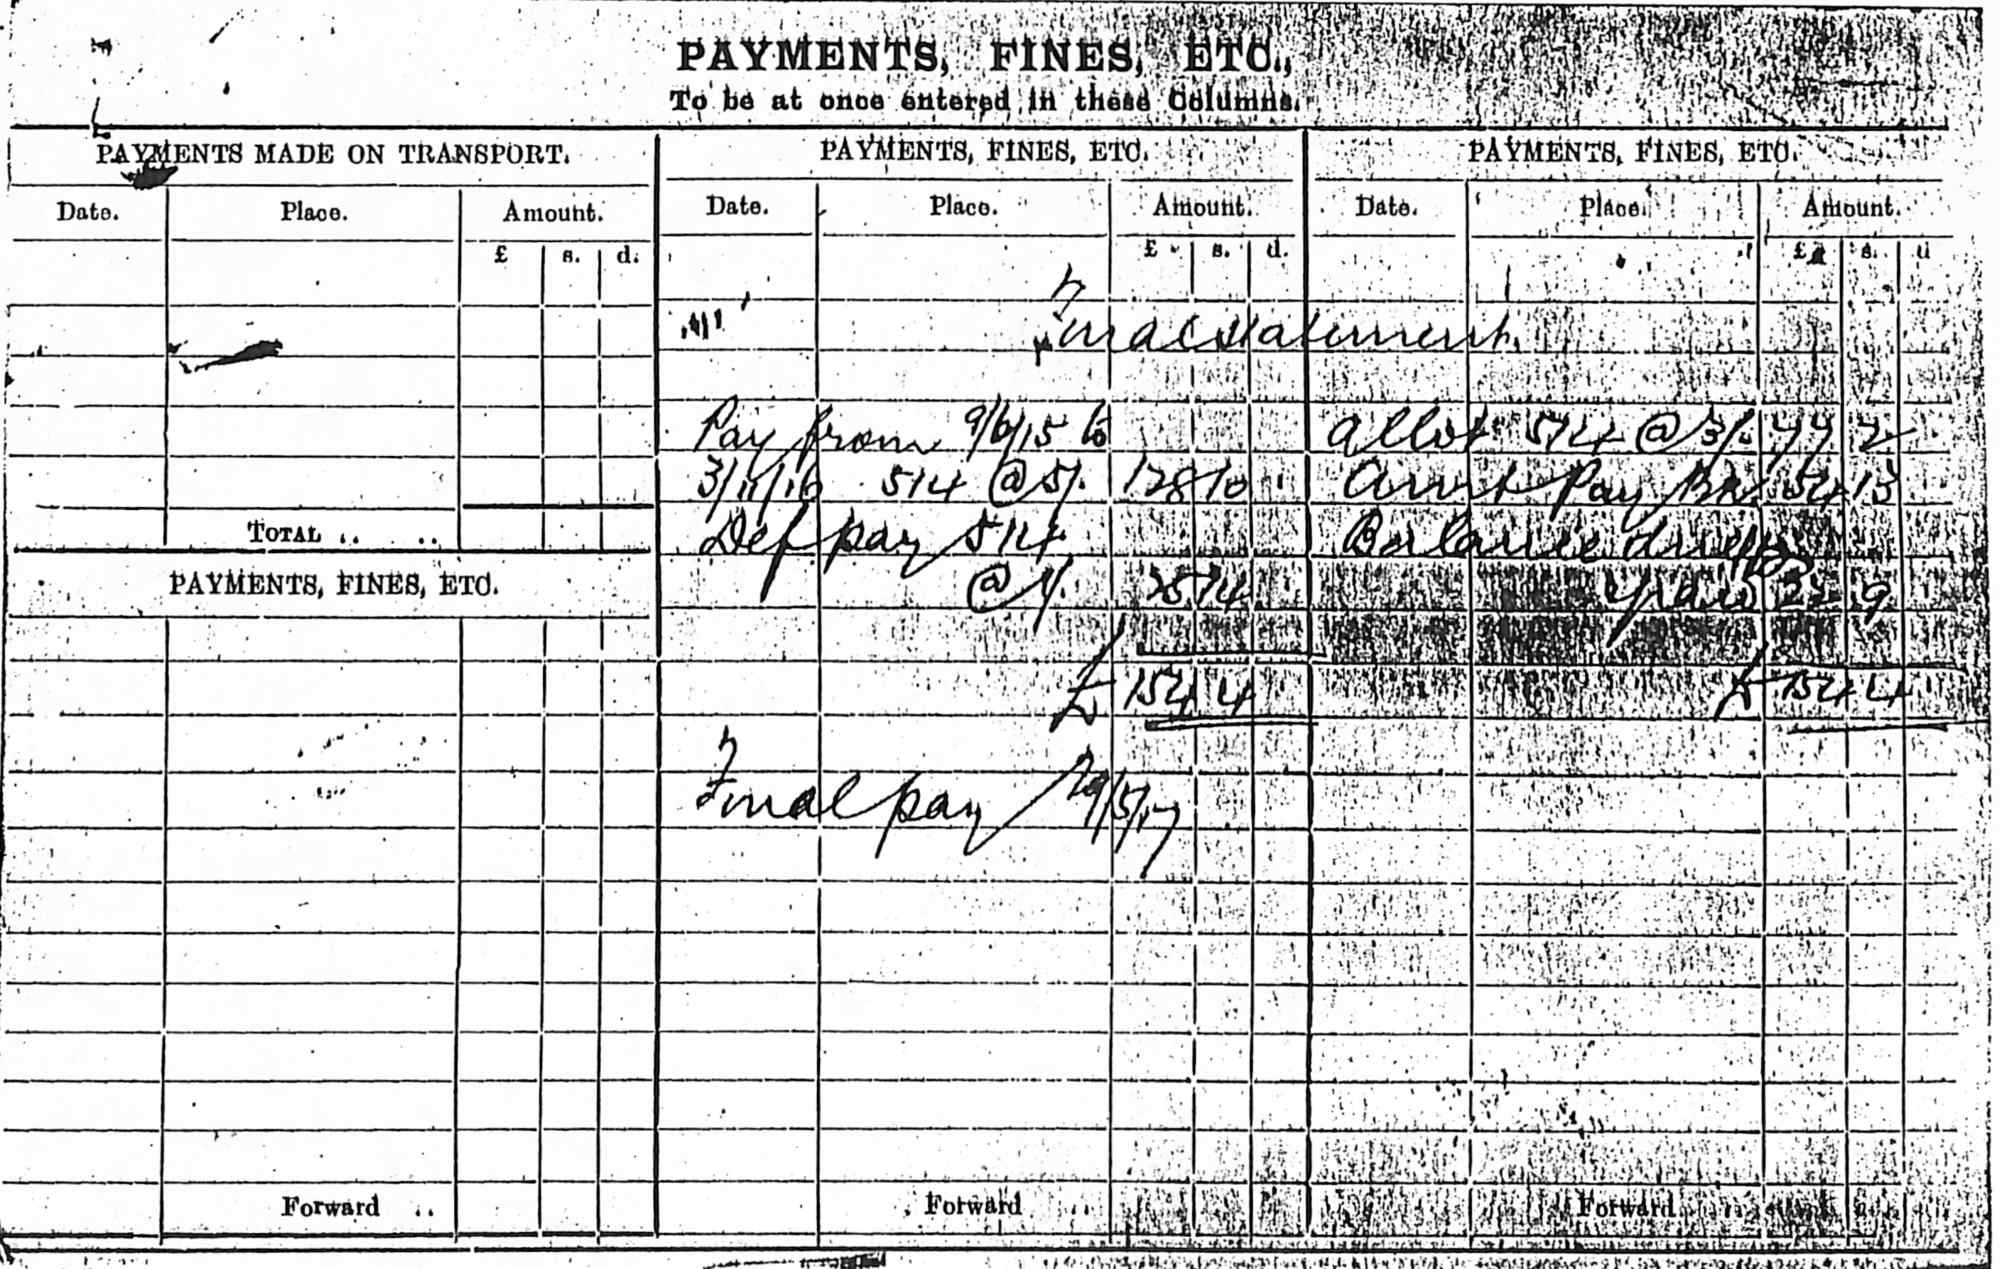 PAYMENTS, FINES, ETC.,
To be at once entered in these Columns.
PAYMENTS MADE ON TRANSPORT.
Date. Place. Amount.
£ s. d.
TOTAL .. ..
PAYMENTS, FINES, ETC.
Forward ..
PAYMENTS, FINES, ETC.
Date. Place. Amount.
£ s. d.
Final Statement.
Pay from 9/6/15 to
3/11/16 514 @ 5/. 128 10 .
Def pay 514
@ 1/. 25 14
£ 154 4
Final pay 29/5/17
Forward ..
PAYMENTS, FINES, ETC.
Date. Place. Amount.
£ s. d
Allot 514 @ 3/. 77 2 .
Amt Pay Bk. 54 13
Balance
22 9
£ 154 4
Forward ..